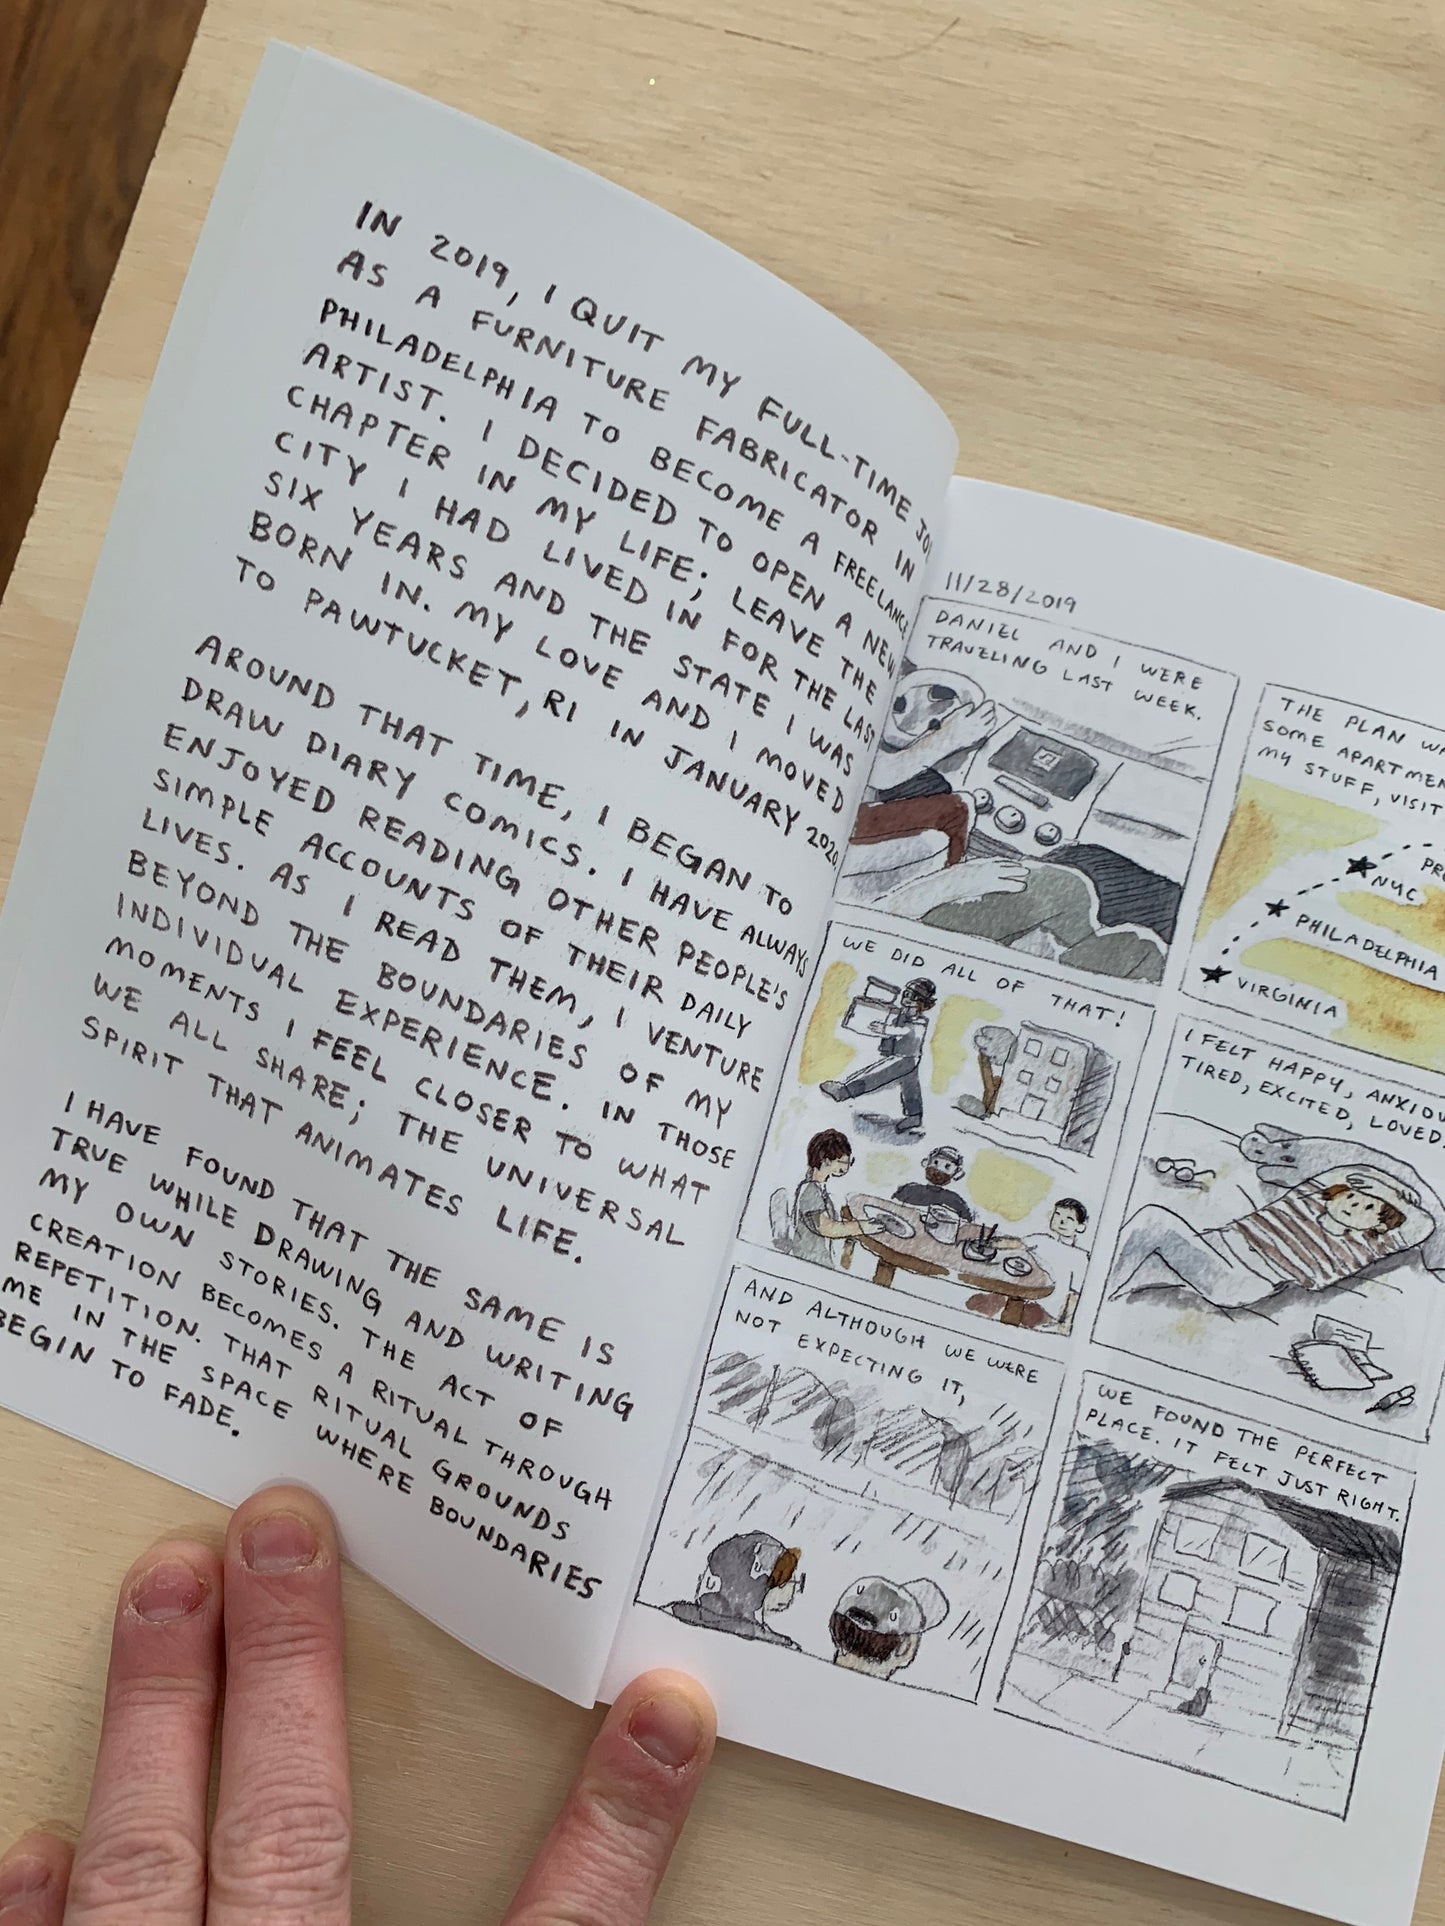 IN 2019, I QUIT MY FULL-TIME
AS A FURNITURE FABRICATOR IN
PHILADELPHIA TO BECOME A FREELANCE
ARTIST. I DECIDED TO OPEN A NEW
CHAPTER IN MY LIFE; LEAVE THE
CITY I HAD LIVED IN FOR THE LAST
SIX YEARS AND THE STATE I WAS
BORN IN. MY LOVE AND I MOVED
TO PAWTUCKET, RI IN JANUARY 2020.
AROUND THAT TIME, I BEGAN TO
DRAW DIARY COMICS. I HAVE ALWAYS
ENJOYED READING OTHER PEOPLE'S
SIMPLE ACCOUNTS OF THEIR DAILY
LIVES. AS I READ THEM, I VENTURE
BEYOND THE BOUNDARIES OF MY
INDIVIDUAL EXPERIENCE. IN THOSE
MOMENTS I FEEL CLOSER TO WHAT
WE ALL SHARE; THE UNIVERSAL
SPIRIT THAT ANIMATES LIFE.
I HAVE FOUND THAT THE SAME IS
TRUE WHILE DRAWING AND WRITING
MY OWN STORIES. THE ACT OF
CREATION BECOMES A RITUAL THROUGH
REPETITION. THAT RITUAL GROUNDS
ME IN THE SPACE WHERE BOUNDARIES
BEGIN TO FADE.
11/28/2019
DANIEL AND I WERE
TRAVELING LAST WEEK.
THE PLAN
SOME
MY STUFF, VISIT
NYC
PHILADELPHIA
VIRGINIA
WE DID ALL OF THAT!
I FELT HAPPY,
TIRED, EXCITED, LOVED.
AND ALTHOUGH WE WERE
NOT EXPECTING IT,
WE FOUND THE PERFECT
PLACE. IT FELT JUST RIGHT.